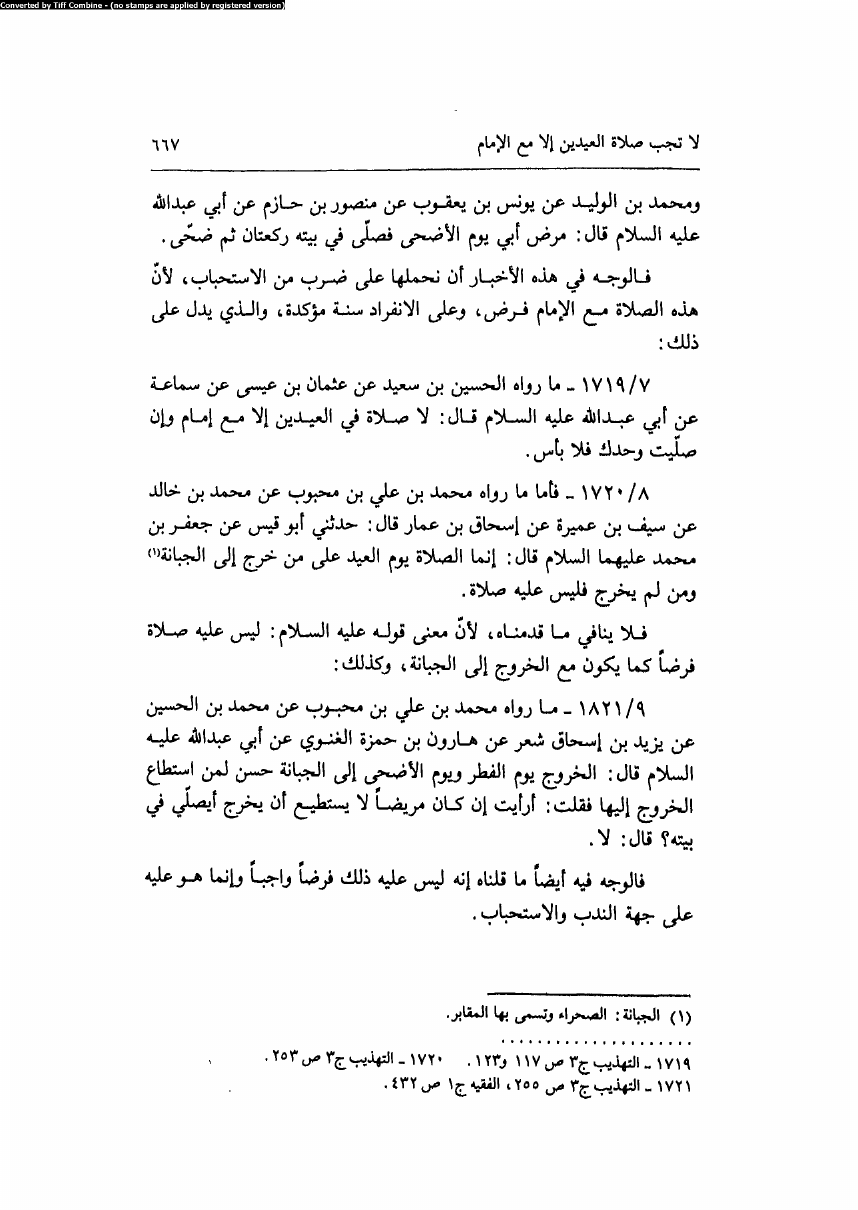 Converted by Tiff Combine - (no stamps are applied by registered version)
لا تجب صلاة العيدين إلا مع الإمام ٦٦٧
ومحمد بن الوليد عن يونس بن يعقوب عن منصور بن حازم عن أبي عبدالله
عليه السلام قال: مرض أبي يوم الأضحى فصلّى في بيته ركعتان ثم ضحّى.
فالوجه في هذه الأخبار أن نحملها على ضرب من الاستحباب، لأنّ
هذه الصلاة مع الإمام فرض، وعلى الانفراد سنة مؤكدة، والذي يدل على
ذلك:
١٧١٩/٧ - ما رواه الحسين بن سعيد عن عثمان بن عيسى عن سماعة
عن أبي عبدالله عليه السلام قال: لا صلاة في العيدين إلا مع إمام وإن
صلّيت وحدك فلا بأس.
١٧٢٠/٨ - فأما ما رواه محمد بن علي بن محبوب عن محمد بن خالد
عن سيف بن عميرة عن إسحاق بن عمار قال: حدثني أبو قيس عن جعفر بن
محمد عليهما السلام قال: إنما الصلاة يوم العيد على من خرج إلى الجبانة(١)
ومن لم يخرج فليس عليه صلاة.
فلا ينافي ما قدمناه، لأنّ معنى قوله عليه السلام: ليس عليه صلاة
فرضاً كما يكون مع الخروج إلى الجبانة، وكذلك:
١٨٢١/٩ - ما رواه محمد بن علي بن محبوب عن محمد بن الحسين
عن يزيد بن إسحاق شعر عن هارون بن حمزة الغنوي عن أبي عبدالله عليه
السلام قال: الخروج يوم الفطر ويوم الأضحى إلى الجبانة حسن لمن استطاع
الخروج إليها فقلت: أرأيت إن كان مريضاً لا يستطيع أن يخرج أيصلّي في
بيته؟ قال: لا.
فالوجه فيه أيضاً ما قلناه إنه ليس عليه ذلك فرضاً واجباً وإنما هو عليه
على جهة الندب والاستحباب.
(١) الجبانة: الصحراء وتسمى بها المقابر.
١٧١٩ - التهذيب ج٣ ص ١١٧ و١٢٣. ١٧٢٠ - التهذيب ج٣ ص ٢٥٣.
١٧٢١ - التهذيب ج٣ ص ٢٥٥، الفقيه ج١ ص ٤٣٢.